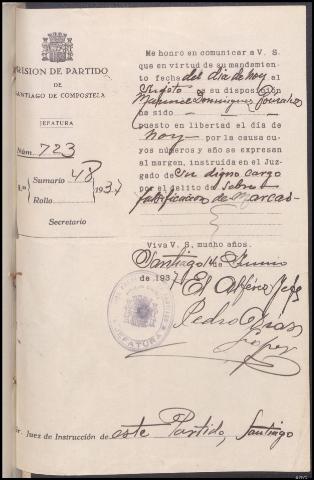 RISION DE PARTIDO
DE
SANTIAGO DE COMPOSTELA
JEFATURA
Núm. 723
Sumario 48
Rollo
1937
Secretario
Me honro en comunicar a V. S.
que en virtud de su mandamien-
to fecha del dia de hoy
Sujeto a su disposición
Manuel Dominguez González
ha sido
puesto en libertad el día de
hoy por la causa cu-
yos números y año se expresan
al margen, instruída en el Juz-
gado de Su digno cargo
por el delito de sobre
falsificacion de Marcas
Viva V. S. mucho años.
Santiago 14 de Junio
de 1937
El Alférez Jefe
Pedro Días
López
JEFATURA
Sr. Juez de Instrucción de este Partido, Santiago